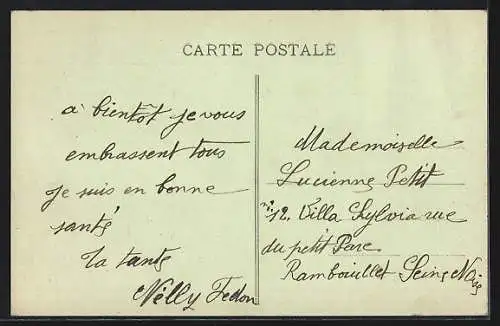 CARTE POSTALE
à bientôt je vous
embrassent tous
je suis en bonne
santé
ta tante
Nelly Fedon
Mademoiselle
Lucienne Petit
n° 12. Villa Sylvia rue
du petit Parc
Rambouillet Seine &